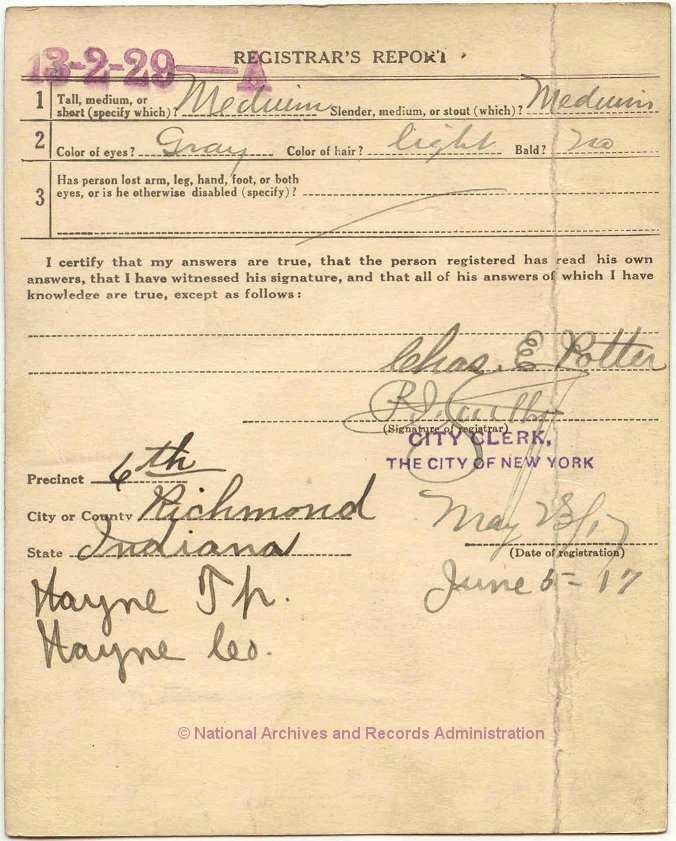 13-2-29—A
REGISTRAR'S REPORT
1 Tall, medium, or short (specify which)? Medium Slender, medium, or stout (which)? Medium
2 Color of eyes? Gray Color of hair? light Bald? no
3 Has person lost arm, leg, hand, foot, or both eyes, or is he otherwise disabled (specify)?
I certify that my answers are true, that the person registered has read his own
answers, that I have witnessed his signature, and that all of his answers of which I have
knowledge are true, except as follows:
Chas. E Potter
(Signature of registrar)
CITY CLERK,
THE CITY OF NEW YORK
Precinct 6th
City or County Richmond
May 23/17
State Indiana
(Date of registration)
June 5 - 17
Hayne Tp.
Hayne Co.
© National Archives and Records Administration